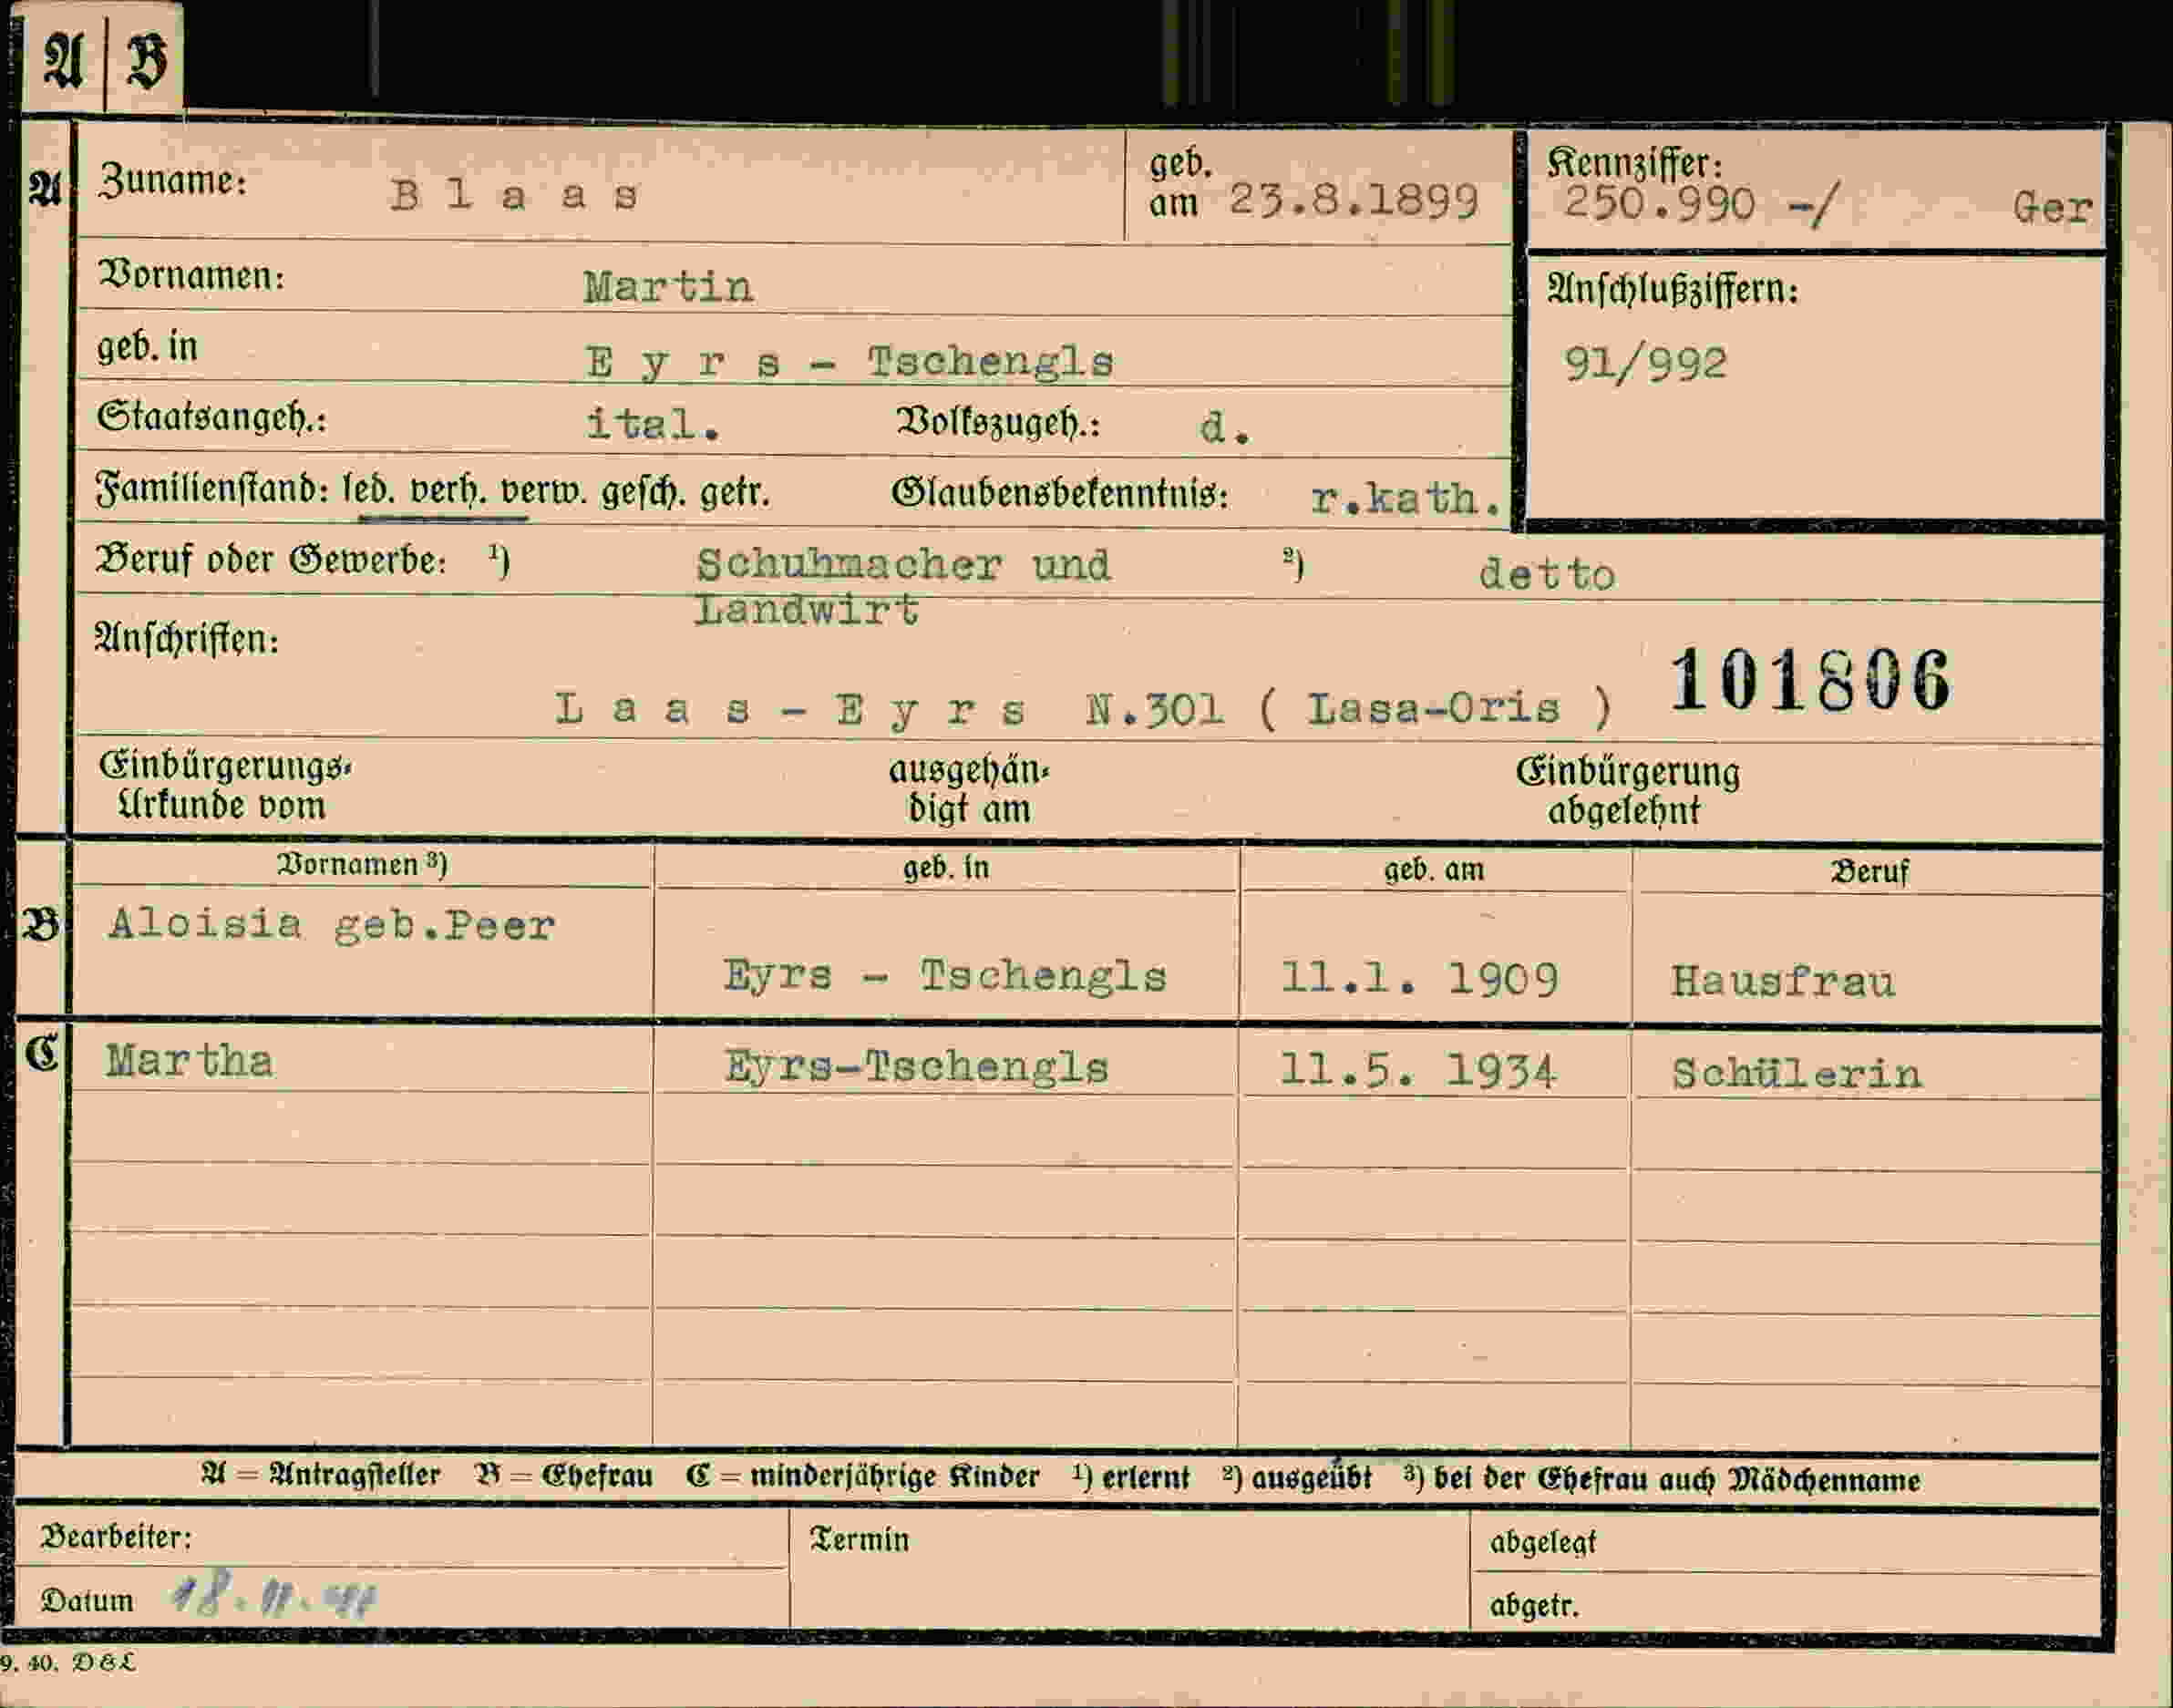 A | B
A
Zuname: B l a a s
geb. am 23.8.1899
Kennziffer:
250.990 -/ Ger
Vornamen: Martin
Anschlußziffern:
91/992
geb. in E y r s - Tschengls
Staatsangeh.: ital. Volkszugeh.: d.
Familienstand: led. verh. verw. gesch. getr. Glaubensbekenntnis: r.kath.
Beruf oder Gewerbe: 1) Schuhmacher und 2) detto
Landwirt
Anschriften:
101806
L a a s - E y r s N.301 ( Lasa-Oris )
Einbürgerungs- ausgehän- Einbürgerung
Urkunde vom digt am abgelehnt
Vornamen 3) geb. in geb. am Beruf
B Aloisia geb.Peer
Eyrs - Tschengls 11.1. 1909 Hausfrau
C Martha Eyrs-Tschengls 11.5. 1934 Schülerin
A = Antragsteller B = Ehefrau C = minderjährige Kinder 1) erlernt 2) ausgeübt 3) bei der Ehefrau auch Mädchenname
Bearbeiter: Termin abgelegt
Datum 18.11. abgetr.
9. 40. D & L